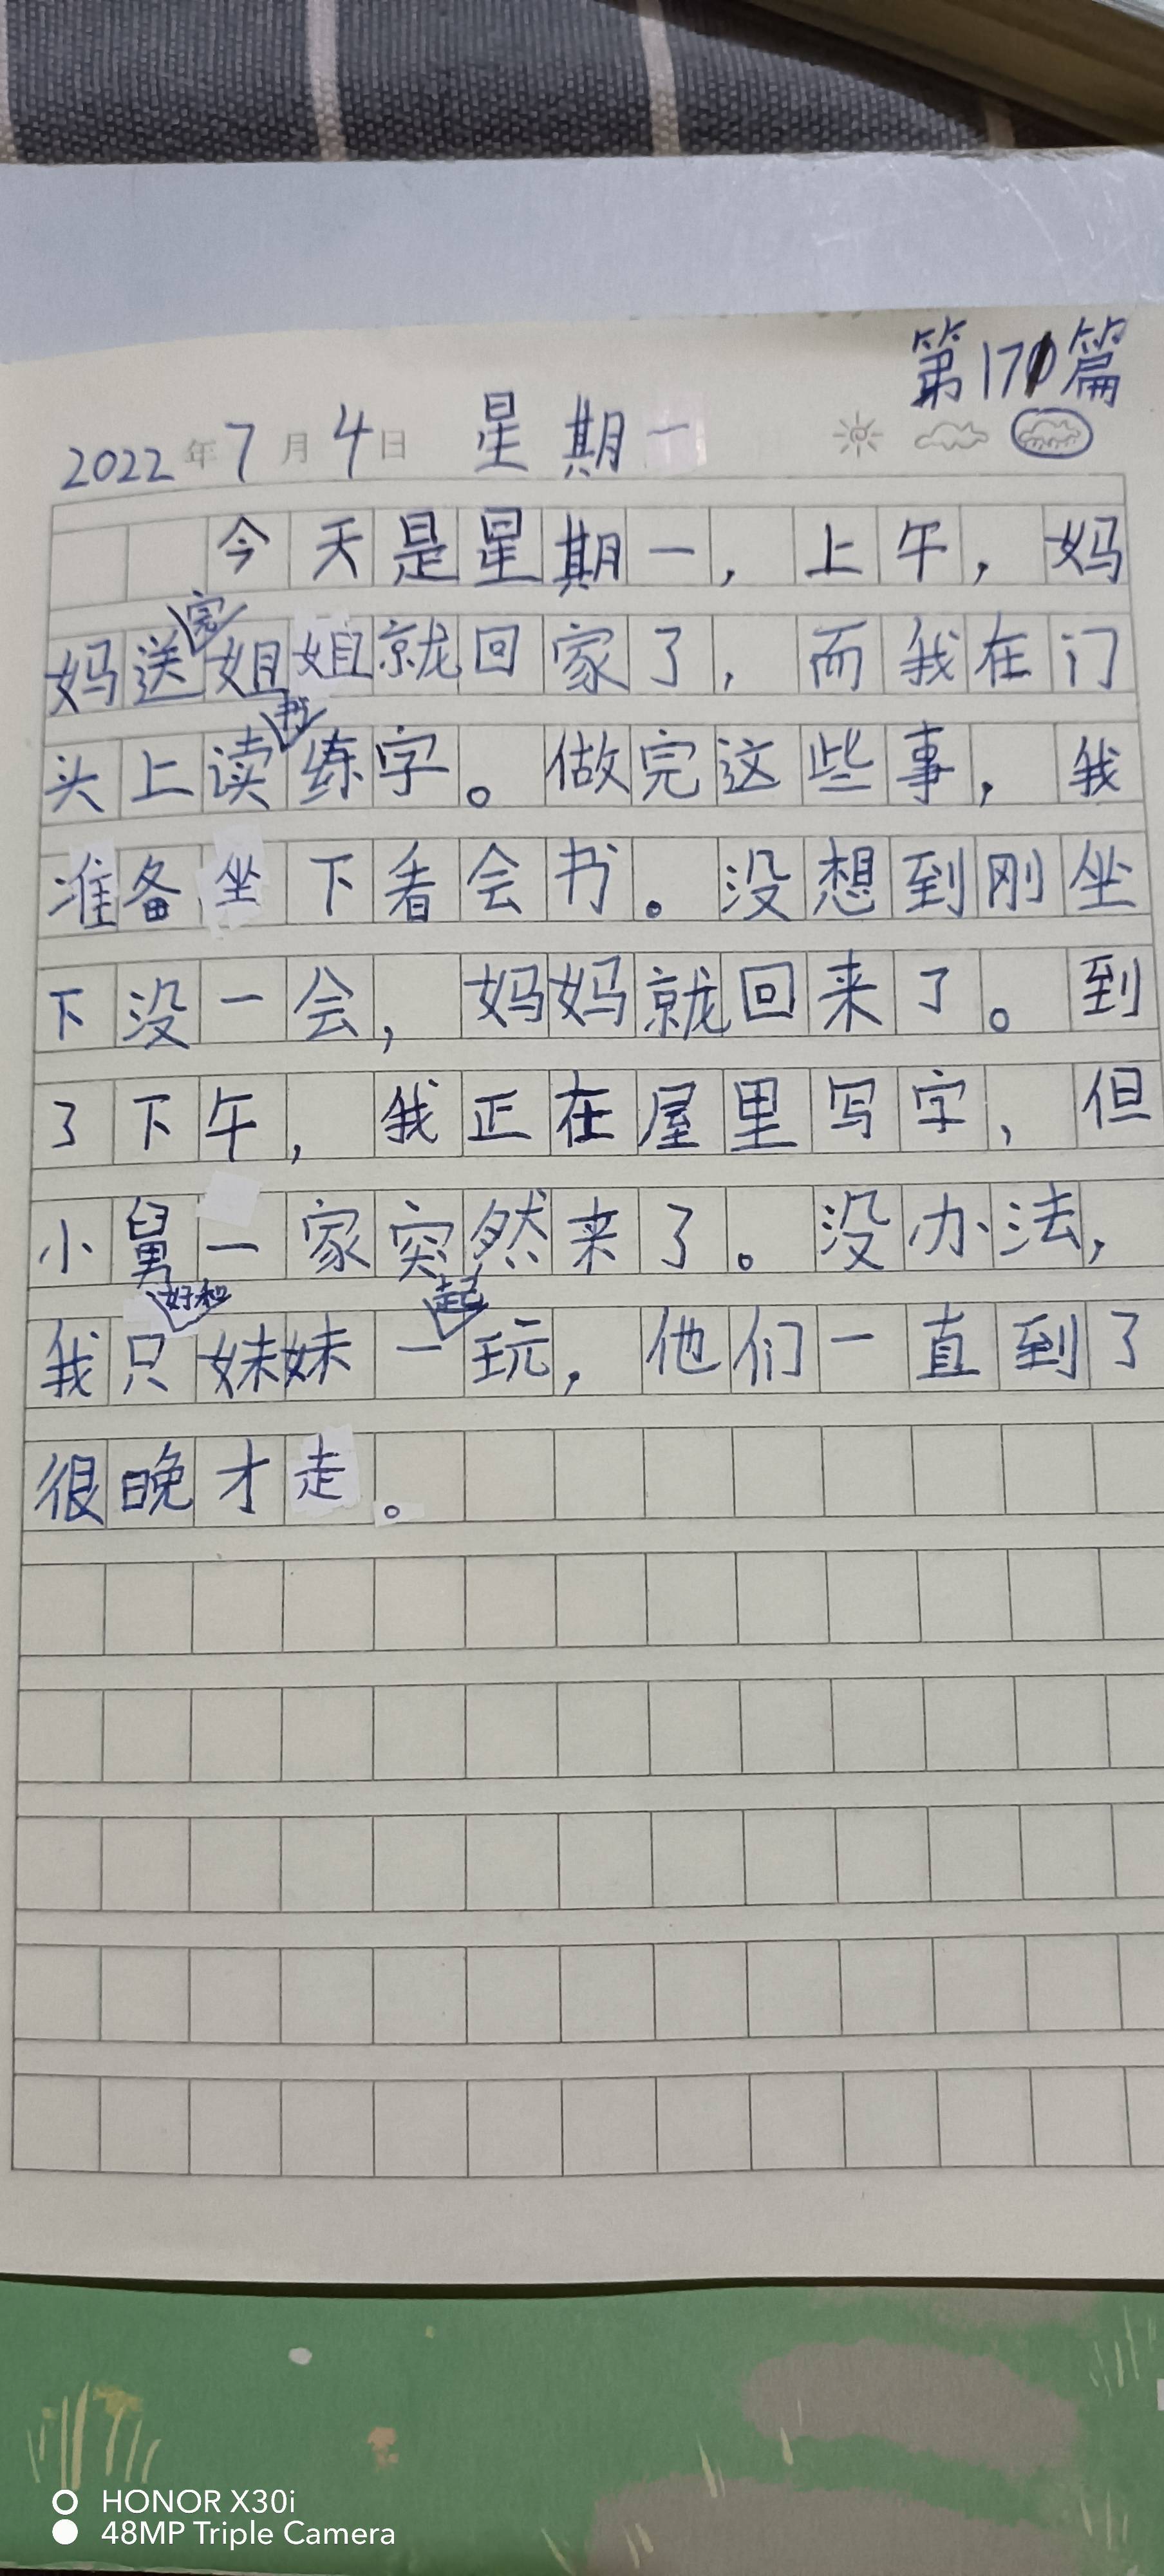 第171篇
2022年7月4日 星期一
今天是星期一，上午，妈
妈送完姐姐就回家了，而我在门
头上读书练字。做完这些事，我
准备坐下看会书。没想到刚坐
下没一会，妈妈就回来了。到
了下午，我正在屋里写字，但
小舅一家突然来了。没办法，
我只好和妹妹一起玩，他们一直到了
很晚才走。
HONOR X30i
48MP Triple Camera